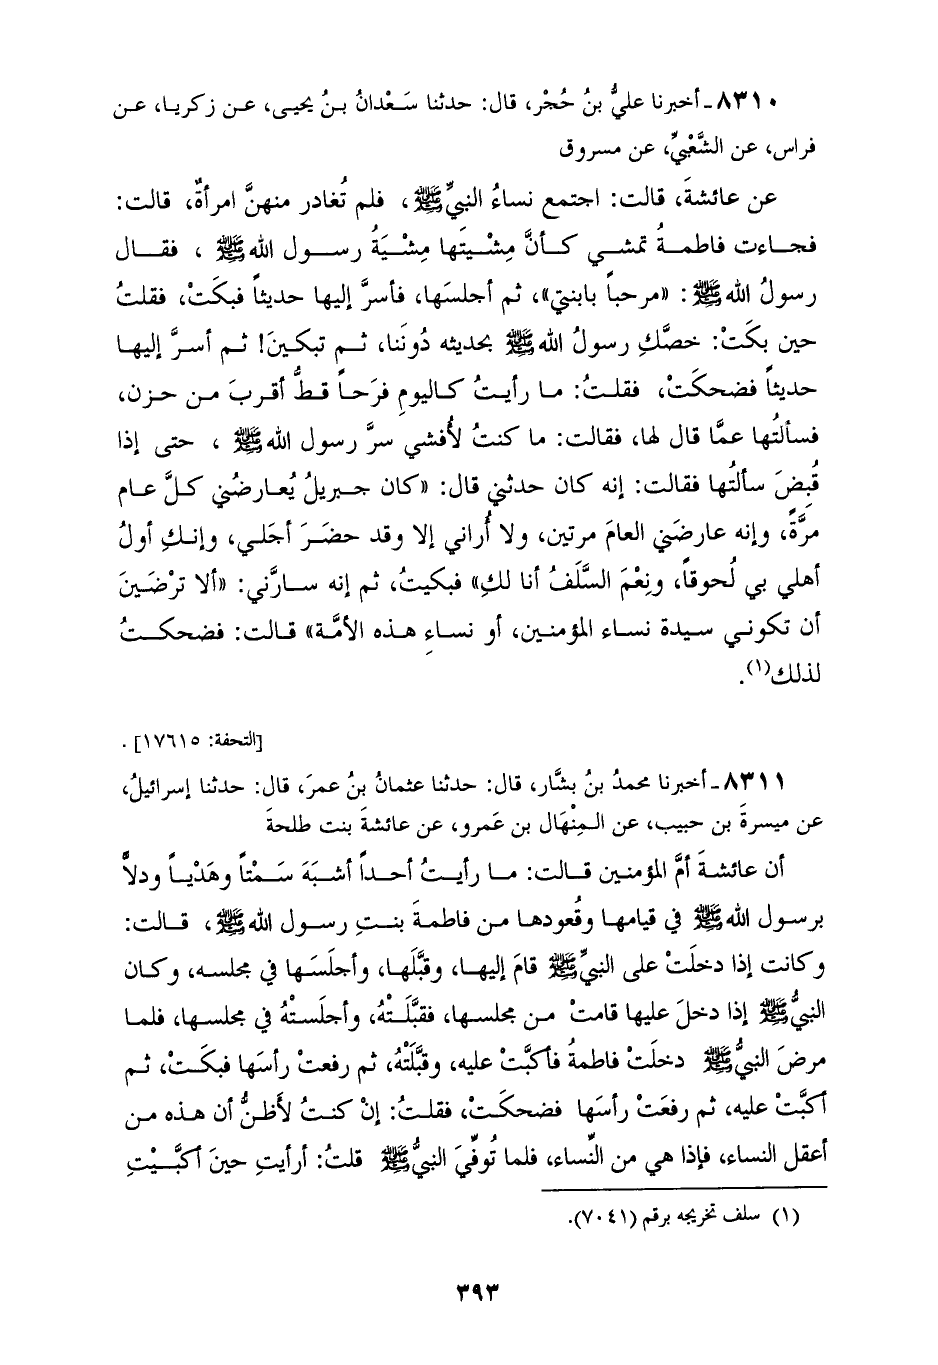 ٨٣١٠ـ أخبرنا عليُّ بنُ حُجْر، قال: حدثنا سَعْدانُ بنُ يحيى، عن زكريا، عن
فراس، عن الشَّعْبيِّ، عن مسروق
عن عائشةَ، قالت: اجتمع نساءُ النبيِّ ﷺ، فلم تُغادر منهنَّ امرأةٌ، قالت:
فجاءت فاطمةُ تمشي كأنَّ مِشْيتَها مِشْيَةُ رسول الله ﷺ، فقال
رسولُ الله ﷺ: «مرحباً بابنتي»، ثم أجلسَها، فأسرَّ إليها حديثاً فبكَتْ، فقلتُ
حين بكَتْ: خصَّكِ رسولُ الله ﷺ بحديثه دُونَنا، ثم تبكينَ! ثم أسرَّ إليها
حديثاً فضحكَتْ، فقلتُ: ما رأيتُ كاليومِ فرَحاً قطُّ أقربَ من حزن،
فسألتُها عمَّا قال لها، فقالت: ما كنتُ لأُفشي سرَّ رسول الله ﷺ، حتى إذا
قُبِضَ سألتُها فقالت: إنه كان حدثني قال: «كان جبريلُ يُعارضُني كلَّ عام
مرَّةً، وإنه عارضَني العامَ مرتين، ولا أُراني إلا وقد حضَرَ أجَلي، وإنكِ أولُ
أهلي بي لُحوقاً، ونِعْمَ السَّلَفُ أنا لكِ» فبكيتُ، ثم إنه سارَّني: «ألا ترْضَينَ
أن تكوني سيدة نساء المؤمنين، أو نساءِ هذه الأمَّة» قالت: فضحكتُ
لذلك(١).
[التحفة: ١٧٦١٥].
٨٣١١ـ أخبرنا محمدُ بنُ بشَّار، قال: حدثنا عثمانُ بنُ عمرَ، قال: حدثنا إسرائيلُ،
عن ميسرةَ بن حبيب، عن المِنْهال بن عَمرو، عن عائشةَ بنت طلحةَ
أن عائشةَ أمَّ المؤمنين قالت: ما رأيتُ أحداً أشبَهَ سَمْتاً وهَدْياً ودلاًّ
برسول الله ﷺ في قيامها وقُعودها من فاطمةَ بنتِ رسول الله ﷺ، قالت:
وكانت إذا دخلَتْ على النبيِّ ﷺ قامَ إليها، وقبَّلَها، وأجلَسَها في مجلسه، وكان
النبيُّ ﷺ إذا دخلَ عليها قامتْ من مجلسها، فقبَّلَتْهُ، وأجلَستْهُ في مجلسها، فلما
مرضَ النبيُّ ﷺ دخلَتْ فاطمةُ فأكبَّتْ عليه، وقبَّلَتْهُ، ثم رفعتْ رأسَها فبكَتْ، ثم
أكبَّتْ عليه، ثم رفعَتْ رأسَها فضحكَتْ، فقلتُ: إنْ كنتُ لأَظنُّ أن هذه من
أعقل النساء، فإذا هي من النِّساء، فلما تُوفِّيَ النبيُّ ﷺ قلتُ: أرأيتِ حينَ أكبَّيْتِ
(١) سلف تخريجه برقم (٧٠٤١).
٣٩٣